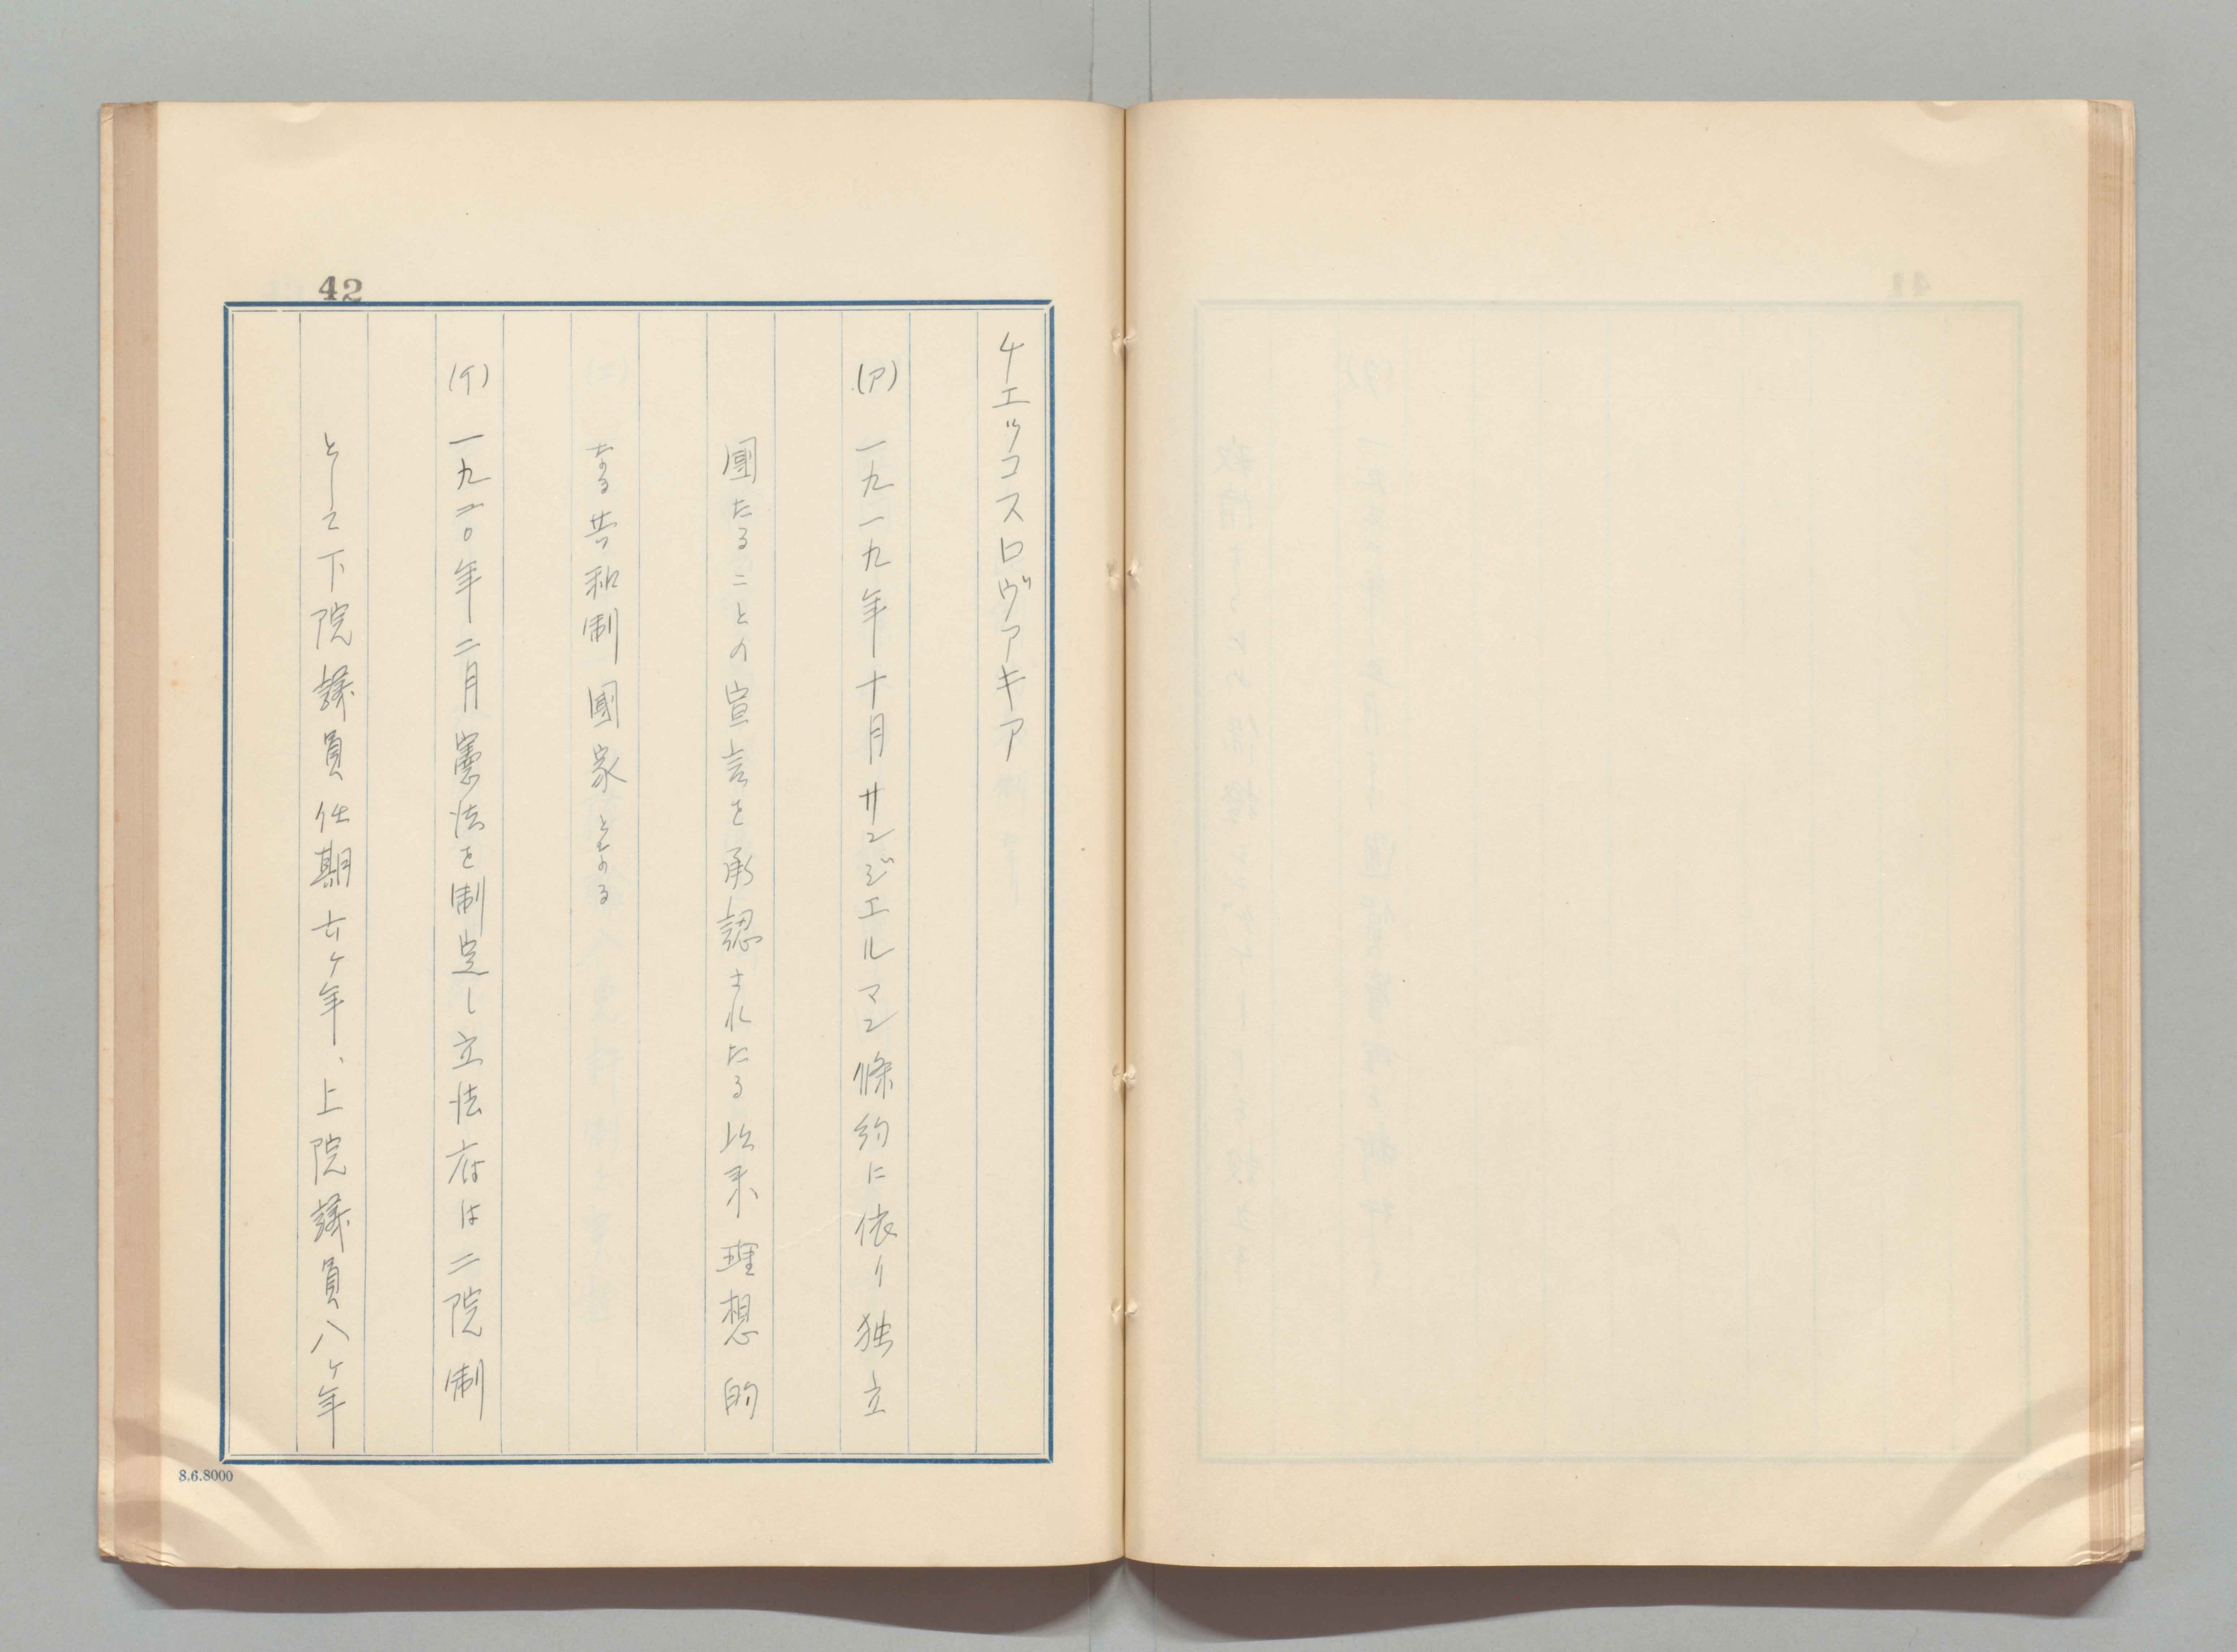 42
チエッコスロヴアキア
(ア) 一九一九年十月サンジエルマン條約に依り独立
國たることの宣言を承認されたる以来理想的
なる共和制國家となる
(イ) 一九二〇年二月憲法を制定し立法府は二院制
として下院議員任期六ヶ年、上院議員八ヶ年
8.6.8000